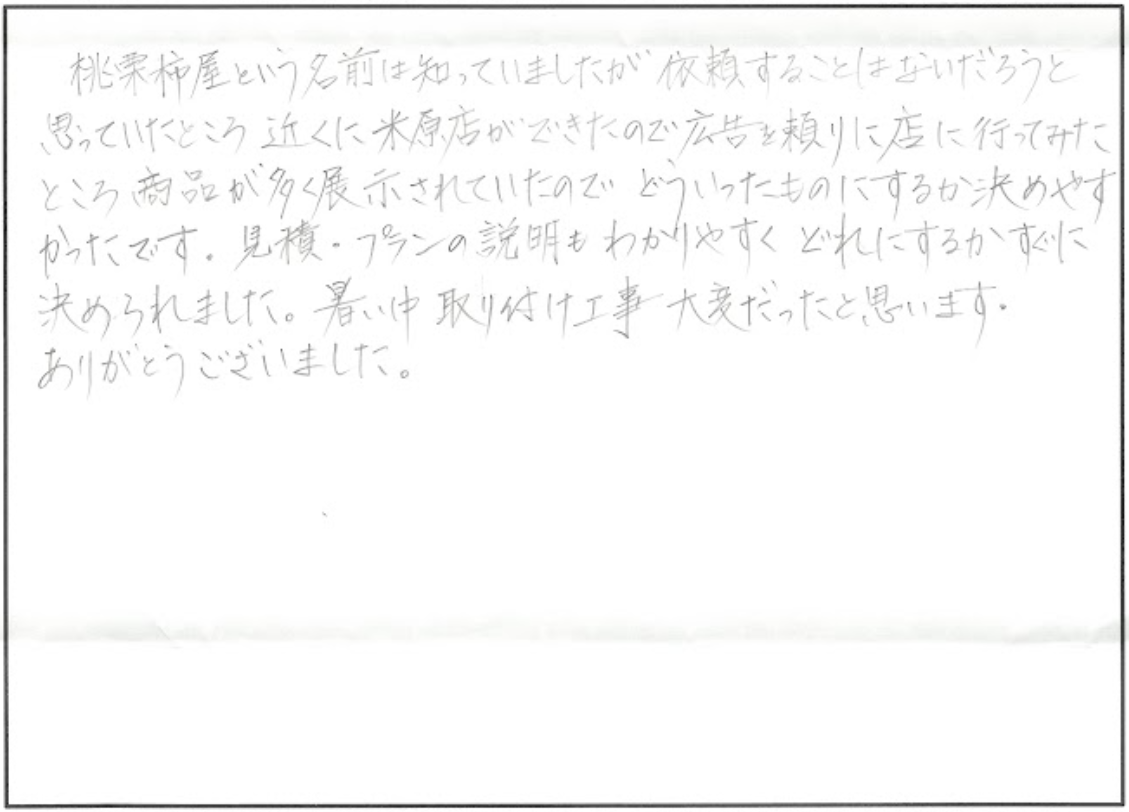 桃栗柿屋という名前は知っていましたが 依頼することはないだろうと
思っていたところ 近くに米原店ができたので広告を頼りに店に行ってみた
ところ 商品が多く展示されていたので どういったものにするか決めやす
かったです。見積・プランの説明もわかりやすく どれにするかすぐに
決められました。暑い中 取り付け工事 大変だったと思います。
ありがとうございました。